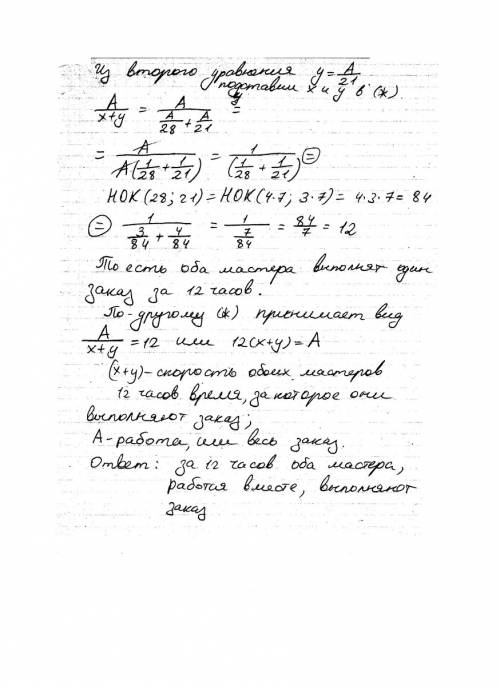 Из второго уравнения y = A/21
подставим x и y в (*).
A/(x+y) = A/(A/28 + A/21) =
= A/(A(1/28 + 1/21)) = 1/(1/28 + 1/21) =
НОК(28; 21) = НОК(4·7; 3·7) = 4·3·7 = 84
= 1/(3/84 + 4/84) = 1/(7/84) = 84/7 = 12
То есть оба мастера выполнят один
заказ за 12 часов.
По-другому (*) принимает вид
A/(x+y) = 12 или 12(x+y) = A
(x+y) – скорость обоих мастеров
12 часов время, за которое они
выполняют заказ;
A – работа, или весь заказ.
Ответ: за 12 часов оба мастера,
работая вместе, выполняют
заказ